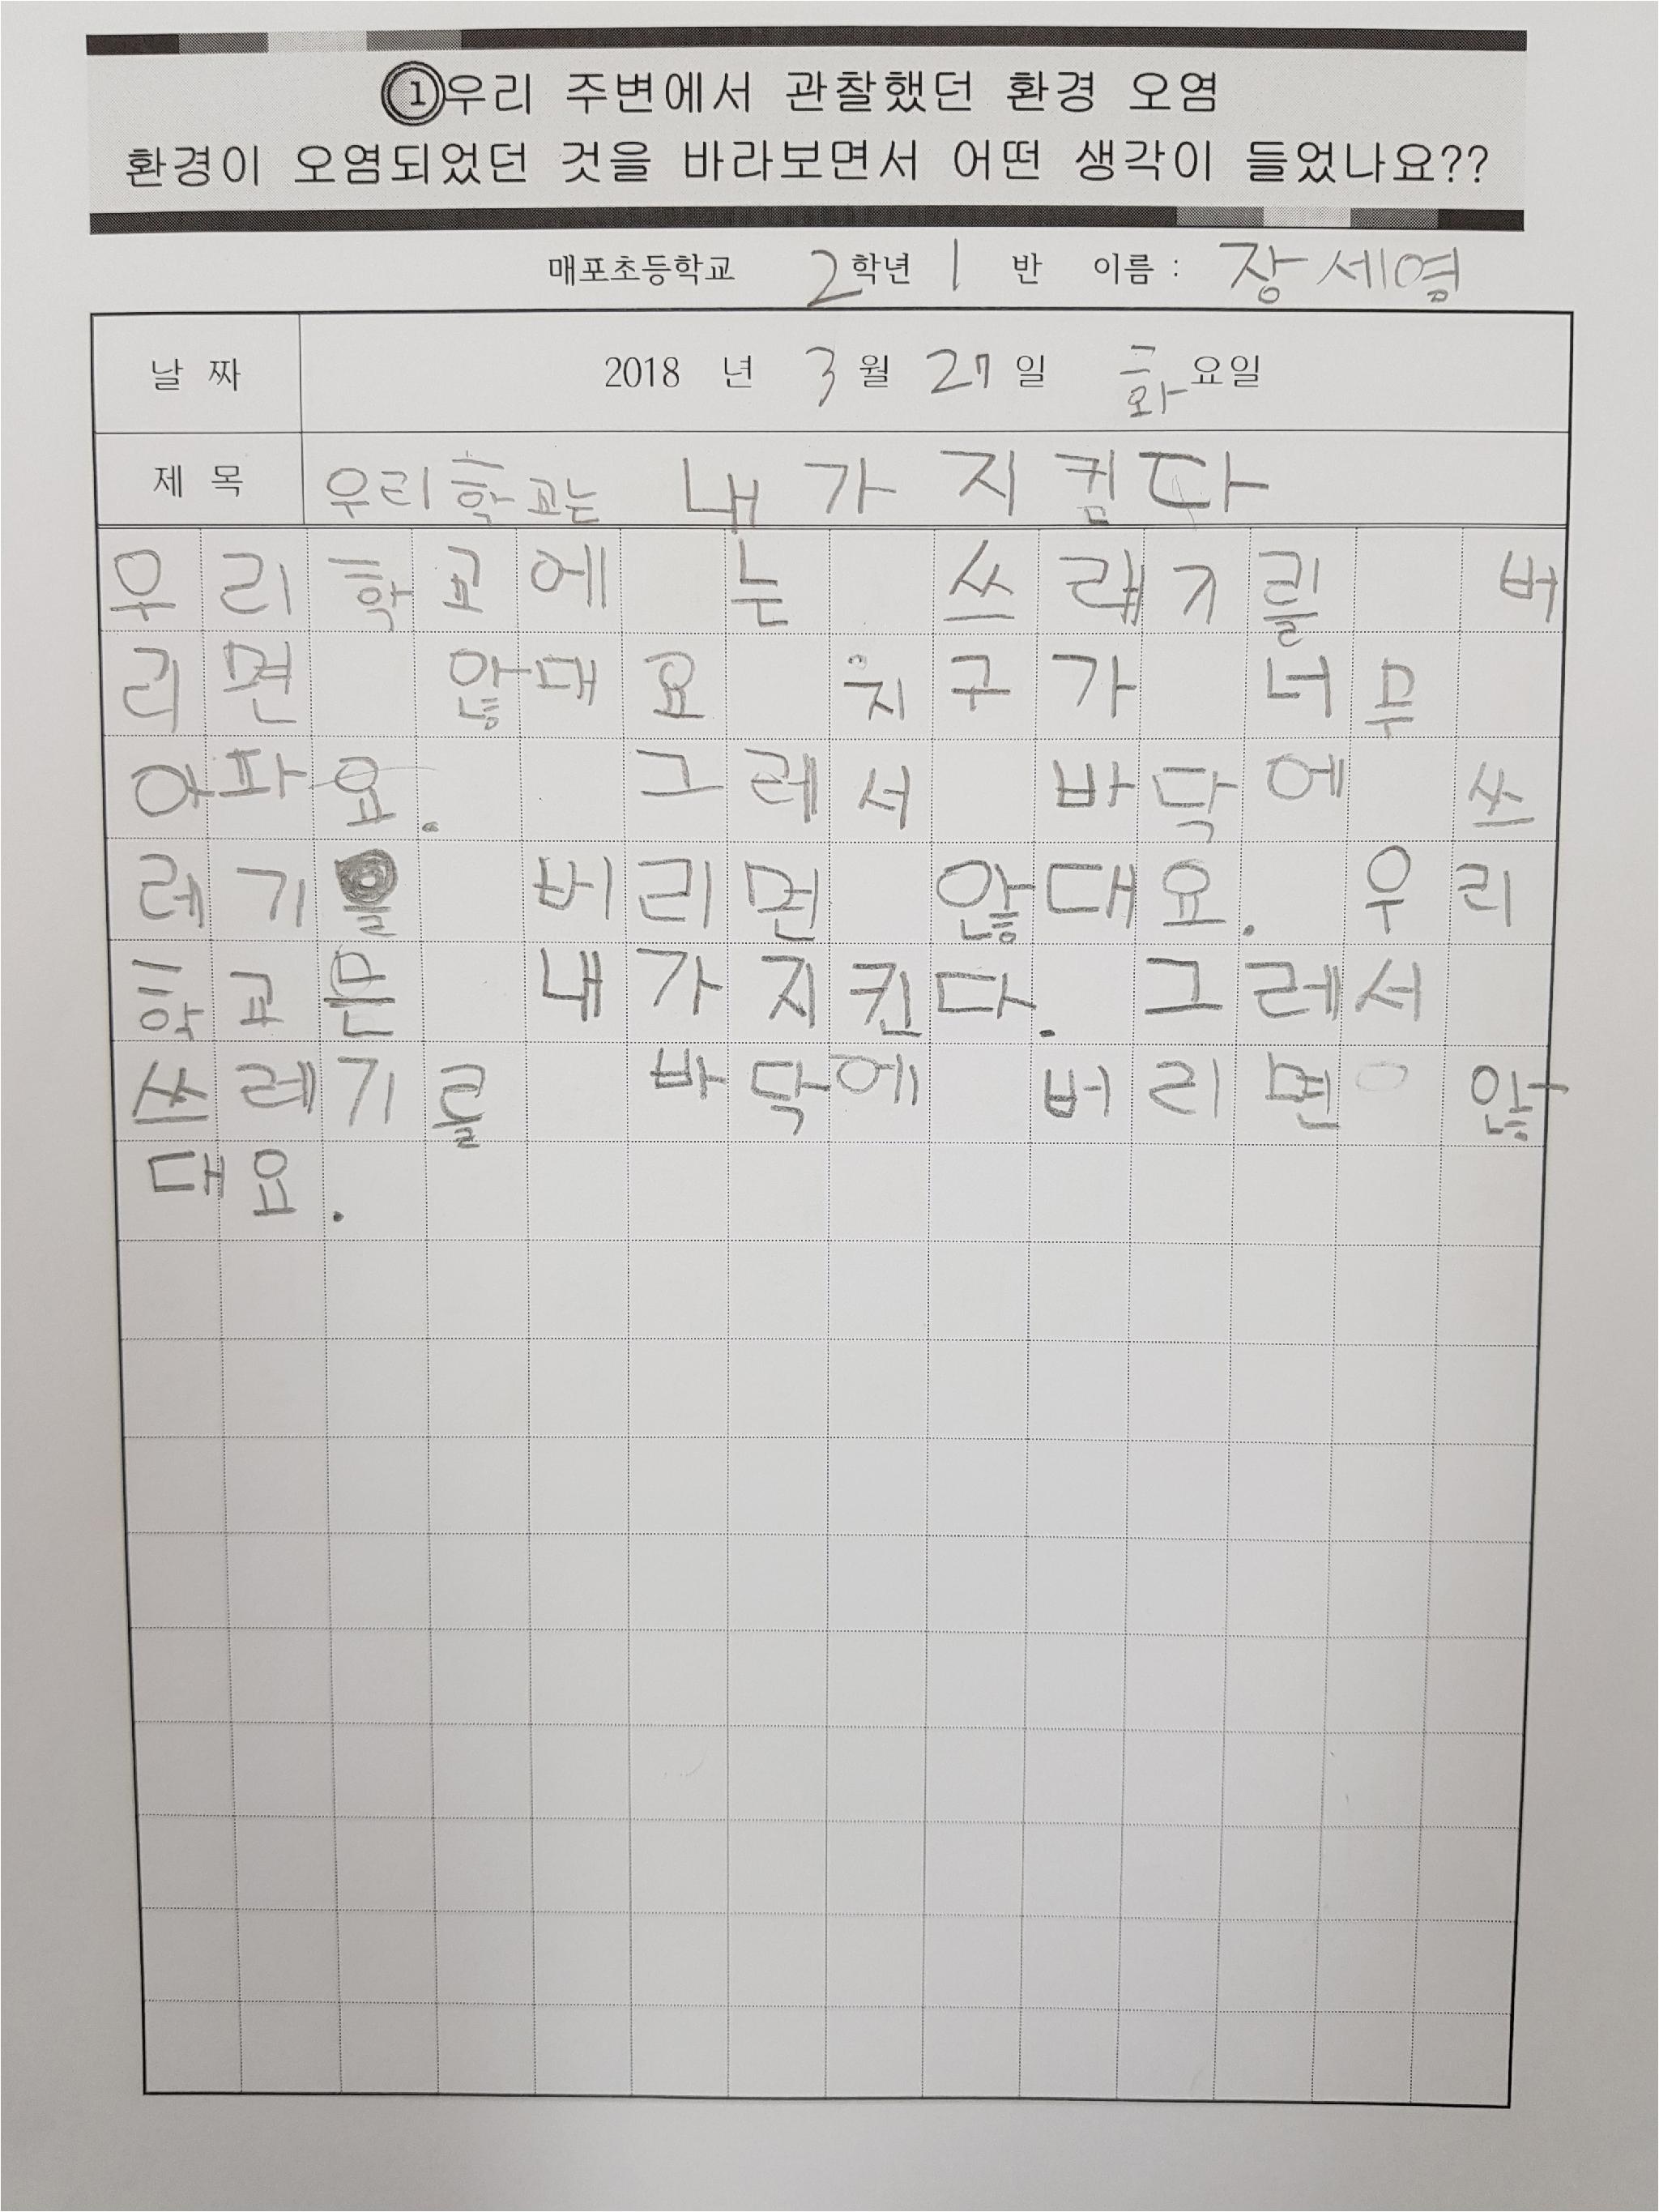 ①우리 주변에서 관찰했던 환경 오염
환경이 오염되었던 것을 바라보면서 어떤 생각이 들었나요??
매포초등학교 2학년 1 반 이름 : 장세영
날 짜 2018 년 3월 27일 화요일
제 목 우리학교는 내가 지킴다
우리학교에 는 쓰레기를 버
리면 않대요 지구가 너무
아파요. 그레서 바닥에 쓰
레기를 버리면 않대요. 우리
학교는 내가지킨다. 그레서
쓰레기를 바닥에 버리면 않
대요.